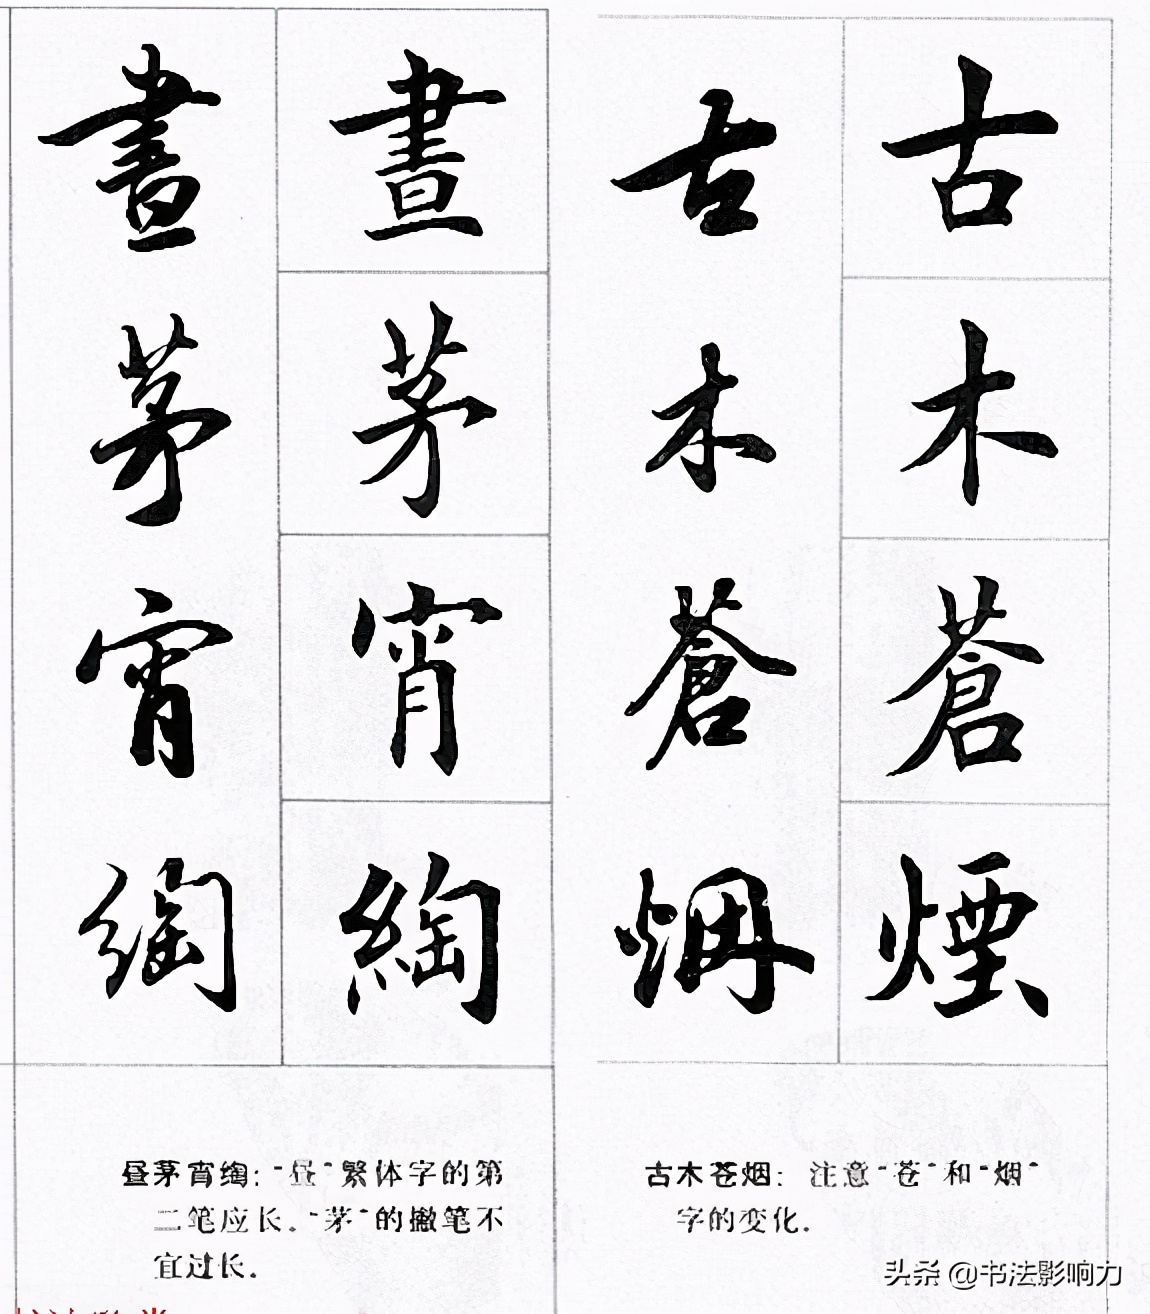 古木蒼煙
古木蒼烟
晝茅宵綯
晝茅宵綯
古木苍烟：注意“苍”和“烟”
字的变化。
昼茅宵绹：“昼”繁体字的第
二笔应长。“茅”的撇笔不
宜过长。
头条 @书法影响力